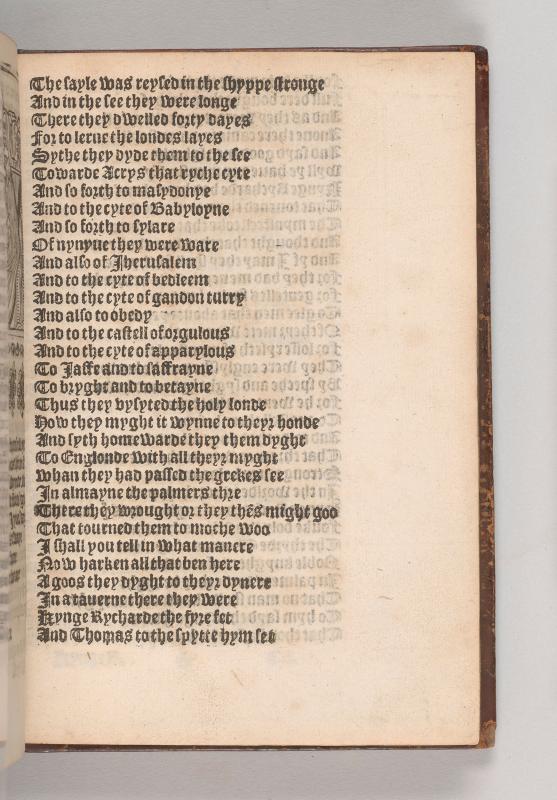 The sayle was reysed in the shyppe stronge
And in the see they were longe
There they dwelled forty dayes
For to lerne the londes layes
Sythe they dyde them to the see
Towarde Acrys that ryche cyte
And so forth to masydonye
And to the cyte of Babyloyne
And so forth to sylare
Of nynyue they were ware
And also of Jherusalem
And to the cyte of bedleem
And to the cyte of gandon turry
And also to obedy
And to the castell of orgulous
And to the cyte of apparylous
To Jaffe and to saffrayne
To bryght and to betayne
Thus they vysyted the holy londe
How they myght it wynne to theyr honde
And syth homewarde they them dyght
To Englonde with all theyr myght
whan they had passed the grekes see
In almayne the palmers thre
There they wrought or they thēs might goo
That tourned them to moche woo
I shall you tell in what manere
Now harken all that ben here
A goos they dyght to theyr dynere
In a tauerne there they were
Kynge Rycharde the fyre fet
And Thomas to the spytte hym set